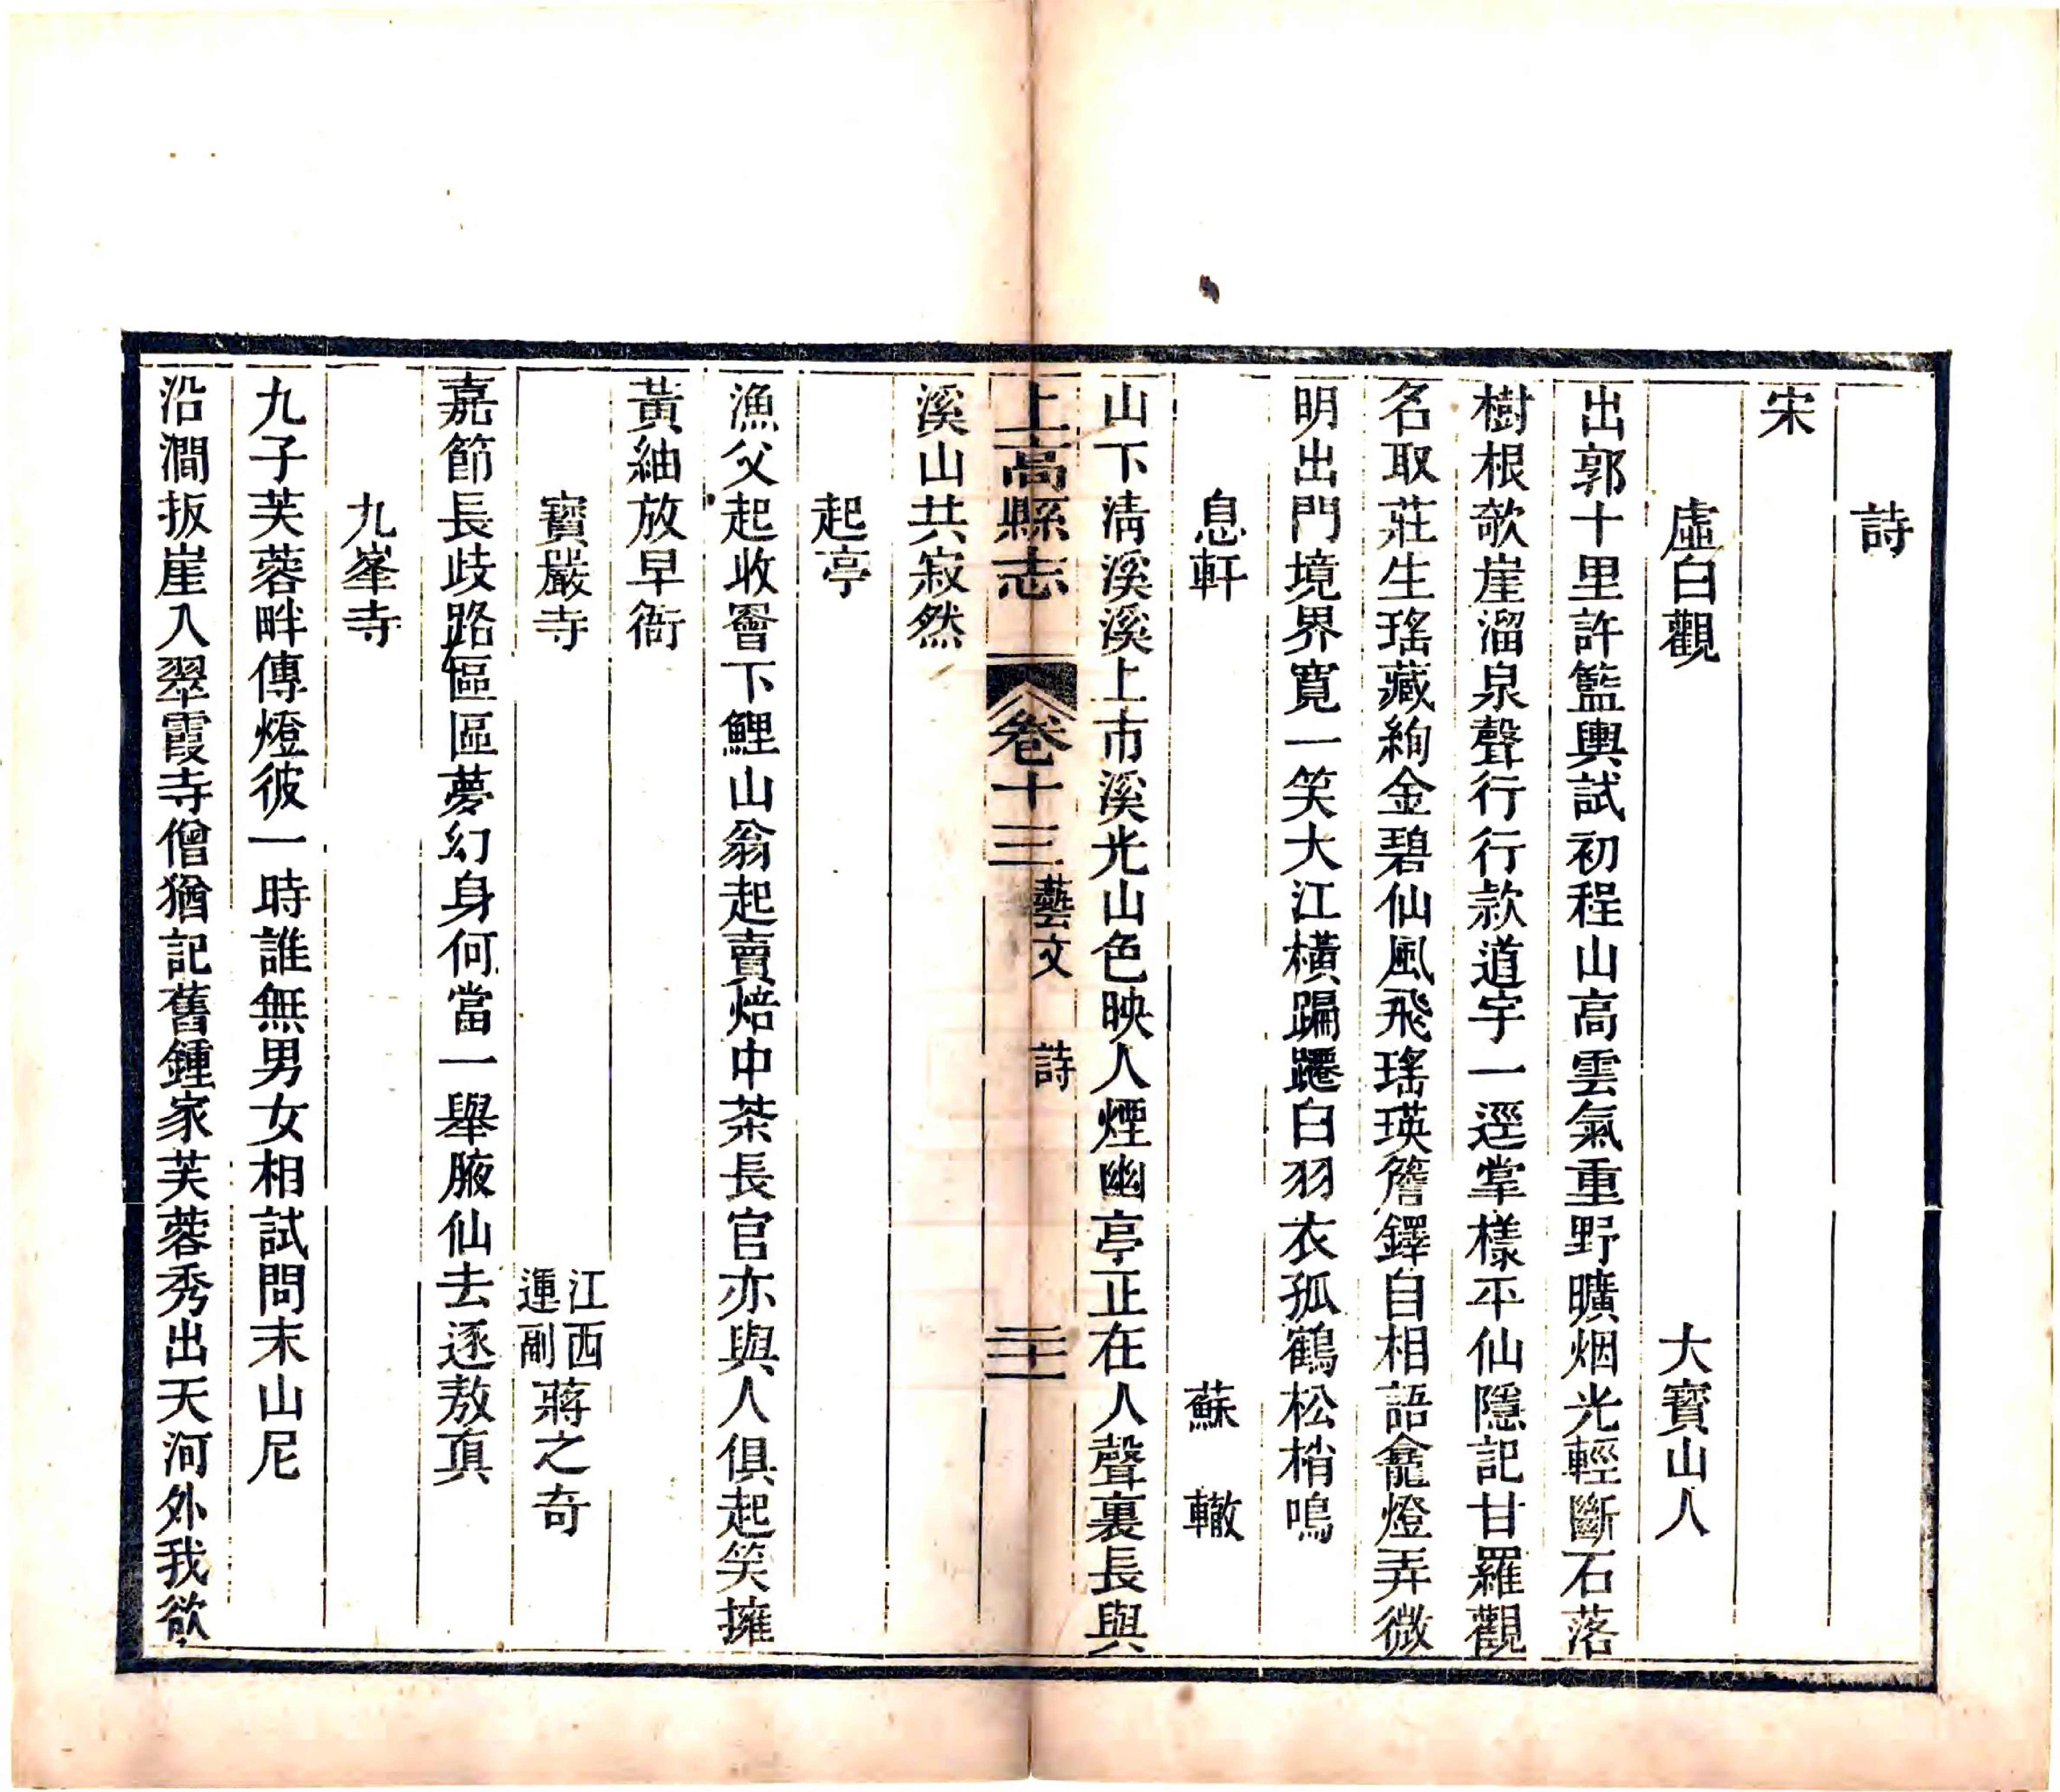 詩
宋
虛白觀　大寶山人
出郭十里許籃輿試初程山高雲氣重野曠烟光輕斷石落
樹根欹崖溜泉聲行行款道宇一逕掌樣平仙隱記甘羅觀
名取莊生瑤藏絢金碧仙風飛瑤瑛簷鐸自相語龕燈弄微
明出門境界寬一笑大江橫蹁躚白羽衣孤鶴松梢鳴
息軒　蘇轍
山下清溪溪上市溪光山色映人煙幽亭正在人聲裏長與
上高縣志　卷十三　藝文　詩　二十一
溪山共寂然
起亭
漁父起收罾下鯉山翁起賣焙中茶長官亦與人俱起笑擁
黃紬放早衙
寶嚴寺　江西運副蔣之奇
嘉節長歧路區區夢幻身何當一舉腋仙去逐敖真
九峯寺
九子芙蓉畔傳燈彼一時誰無男女相試問末山尼
沿澗扳崖入翠霞寺僧猶記舊鍾家芙蓉秀出天河外我欲